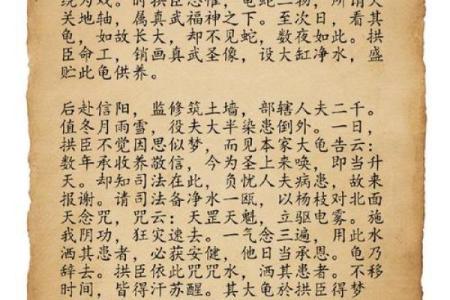 绕为戏。时拱臣忌惟，龟蛇二物，所谓天
关地轴，属真武福神之下。至次日，看其
龟，如故长大，却不见蛇，数夜如此。拱
臣命工，销画真武圣像，设大缸净水，盛
贮此龟供养。
后赴信阳，监修筑土墙，部辖人夫二千。
值冬月雨雪，役夫大半染患倒外。一日，
拱臣不觉因思似梦，而见本家大龟告云：
数年承收养敬信，今为圣上来唤，即当升
天。却知司法在此，负忧人夫病患，故来
报谢。请司法备净水一瓯，以杨枝对北面
天念咒，咒云：天罡天魁，立驱电雾。施
我阴功，狂灾速去。一气念三遍，用此水
洒其患者，必获安健，他日当承恩。龟乃
辞去。拱臣依此咒咒水，洒其患者。不移
时间，皆得汗苏醒。其大龟於拱臣得梦